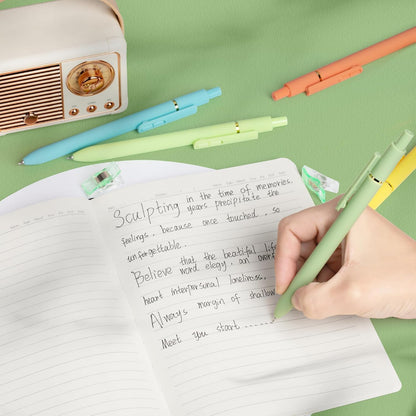 Sculpting in the time of memories.
years precipitate the
feelings, because once touched, so
unforgettable.
Believe that the beautiful life
word elegy, an over
heart interpersonal loneliness.
Always margin of shallow
Meet you start......